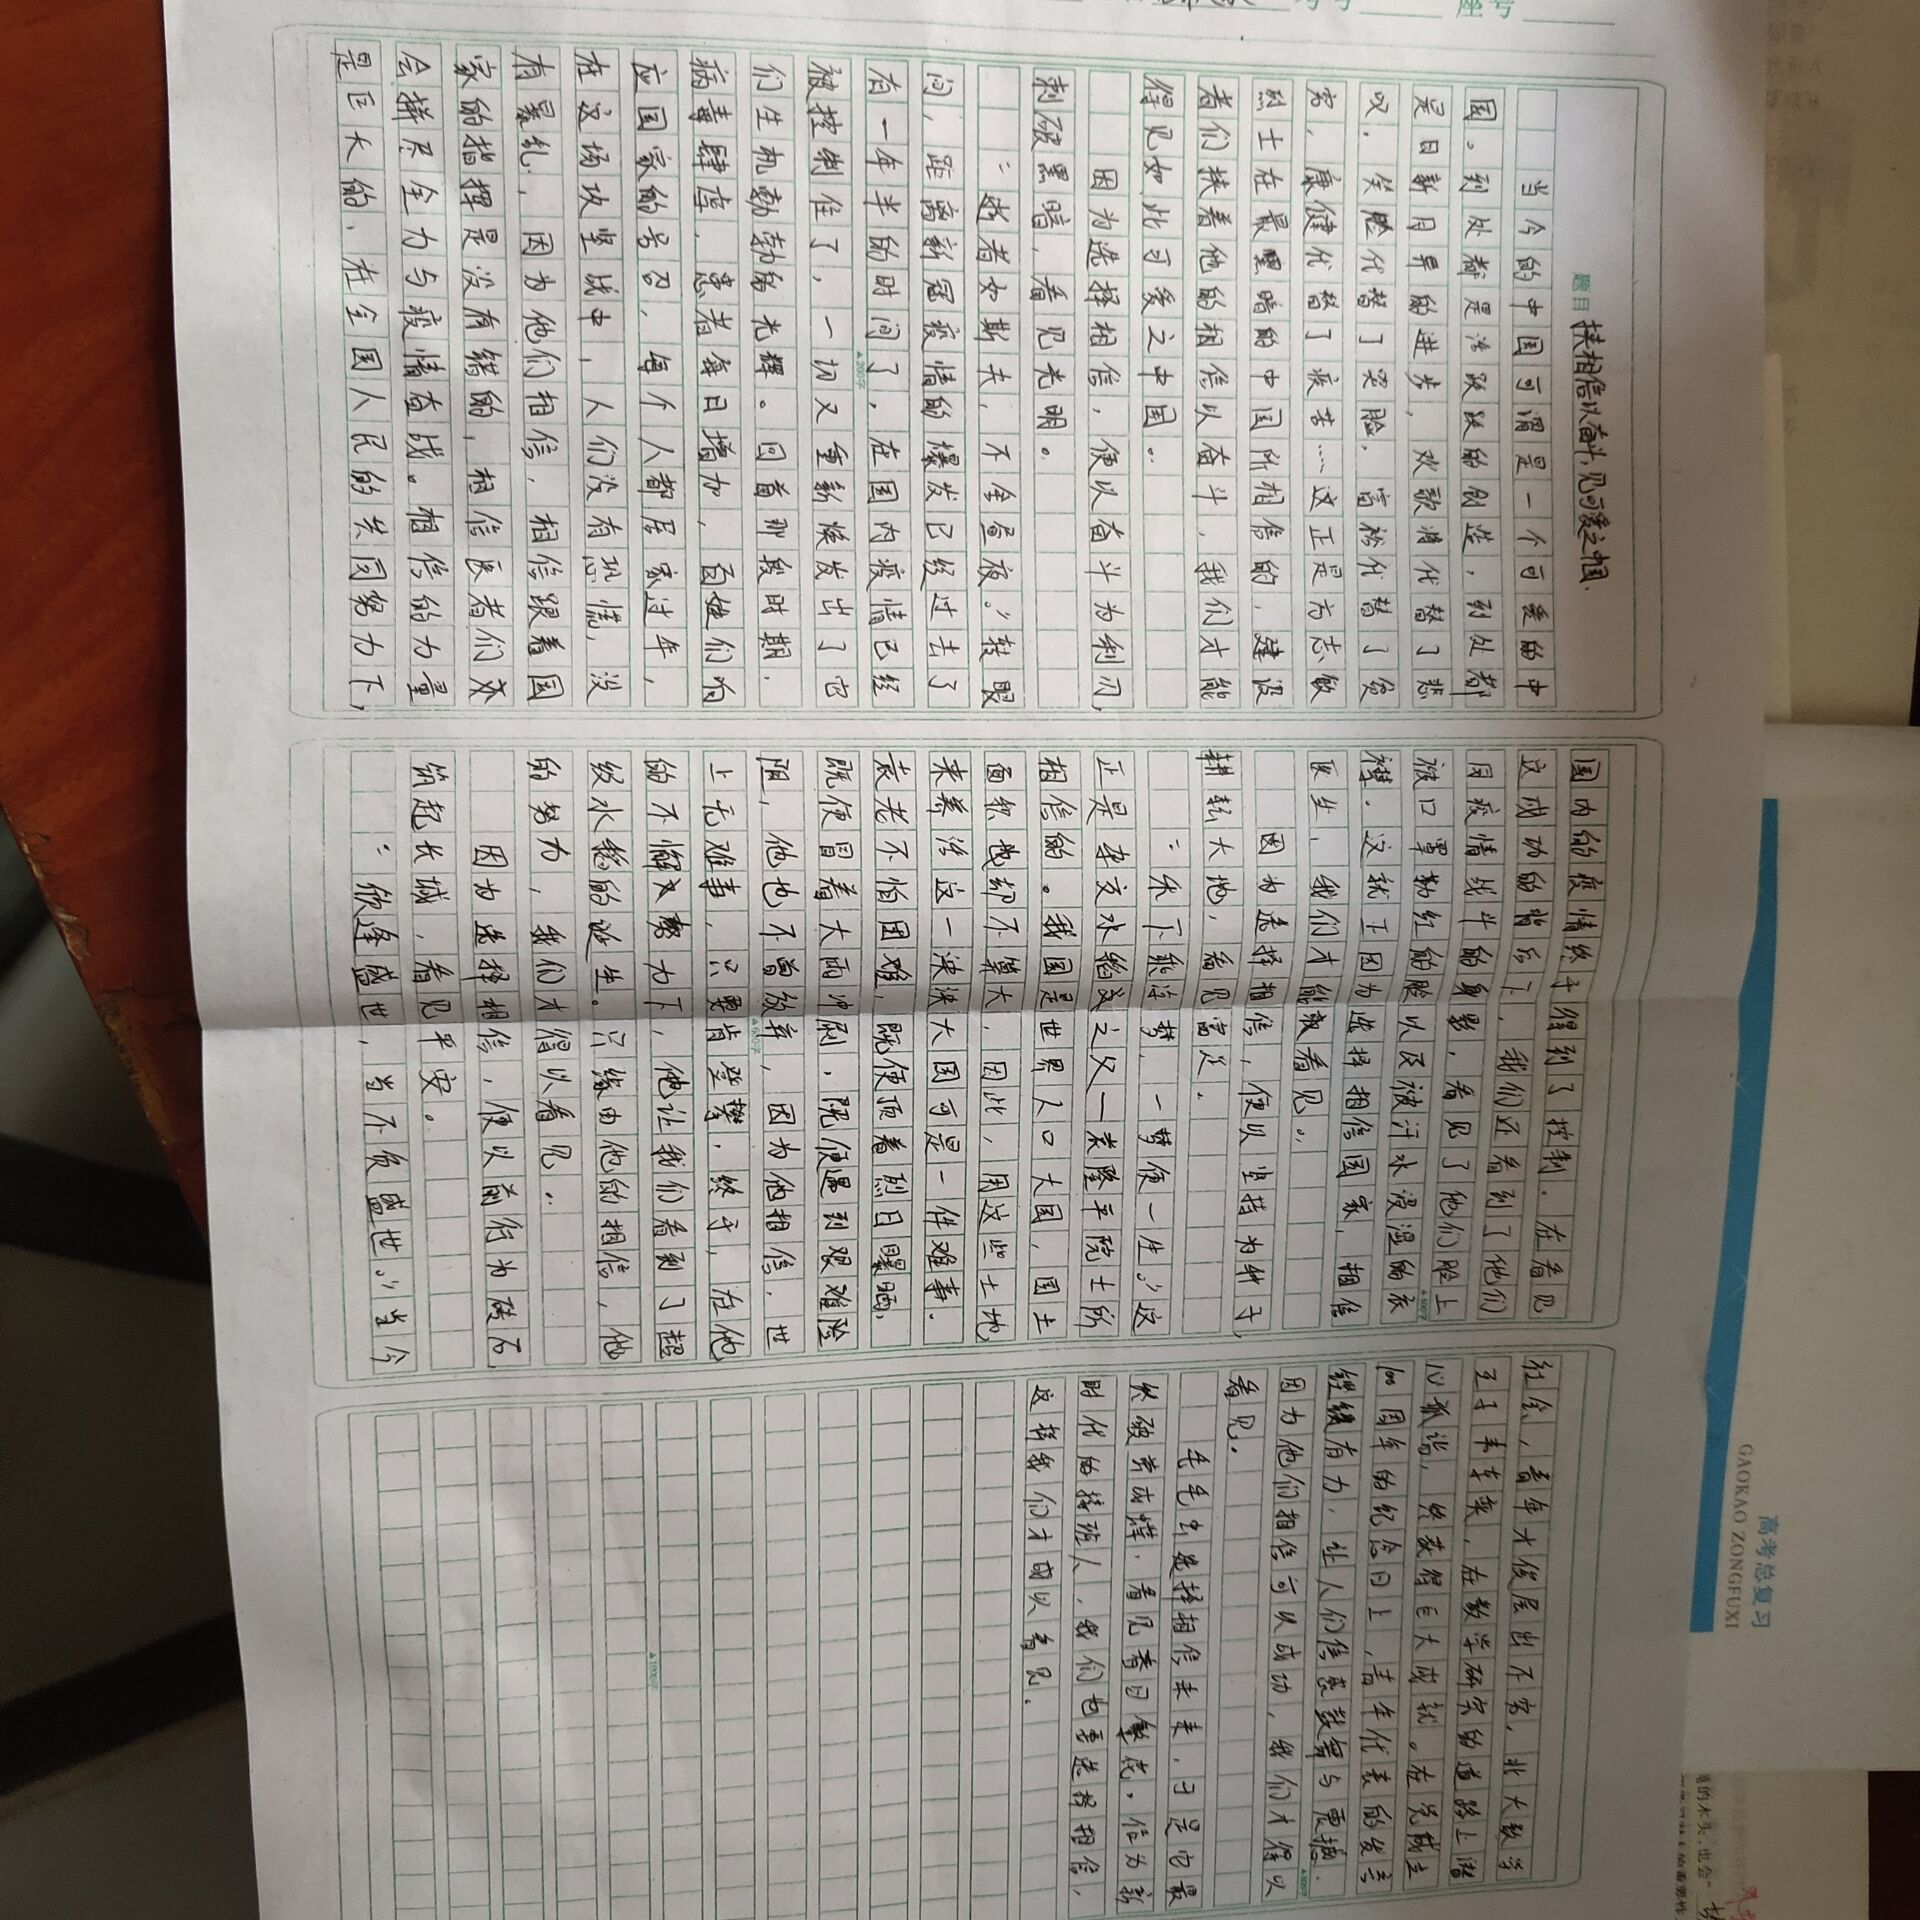 座号
题目 挟相信以奋斗,见可爱之中国.
当今的中国可谓是一个可爱的中
国。到处都是活跃跃的创造,到处都
是日新月异的进步,欢歌将代替了悲
叹,笑脸代替了哭脸,富裕代替了贫
穷,康健代替了疾苦……这正是方志敏
烈士在最黑暗的中国所相信的,建设
者们挟着他的相信以奋斗,我们才能
得见如此可爱之中国。
因为选择相信,便以奋斗为利刃,
刺破黑暗,看见光明。
“逝者如斯夫,不舍昼夜。”转眼
间,距离新冠疫情的爆发已经过去了
有一年半的时间了,在国内疫情已经
▲200字
被控制住了,一切又重新焕发出了它
们生机勃勃的光辉。回首那段时期,
病毒肆虐,患者每日增加,因他们响
应国家的号召,每个人都居家过年,
在这场攻坚战中,人们没有恐慌,没
有暴乱,因为他们相信,相信跟着国
家的指挥是没有错的,相信医者们亦
会拼尽全力与疫情奋战。相信的力量
是巨大的,在全国人民的共同努力下,
国内的疫情终于得到了控制.在看见
这成功的背后下,我们还看到了他们
同疫情战斗的身影,看见了他们脸上
被口罩勒红的脸以及被汗水浸湿的衣
▲400字
襟.这就正因为选择相信国家,相信
医生,我们才能够看见。
因为选择相信,便以坚持为种子,
耕耘大地,看见富足.
“禾下乘凉梦,一梦便一生”,这
正是杂交水稻之父—袁隆平院士所
相信的。我国是世界人口大国,国土
面积也却不算大,因此,用这些土地
来养活这一泱泱大国可是一件难事.
袁老不怕困难,既便顶着烈日曝晒,
既使冒着大雨冲刷,既便遇到艰难险
阻,他也不曾放弃,因为他相信,世
▲600字
上无难事,只要肯登攀,终于,在他
的不懈努力下,他让我们看到了超
级水稻的诞生。只缘由他的相信,他
的努力,我们才得以看见..
因为选择相信,便以前行为砖石,
筑起长城,看见平安。
“欣逢盛世,当不负盛世”,当今
社会,青年才俊层出不穷,北大数学
王子韦东奕,在数学研究的道路上潜
心孤诣,终获得巨大成就。在党成立
100周年的纪念日上,青年代表的发言
铿锵有力,让人们倍感鼓舞与震撼.
▲800字
因为他们相信可以成功,我们才得以
看见.
毛毛虫选择相信未来,于是它最
终破茧成蝶,看见春日
时代的接班人,我们也要选择相信,
这样我们才或以看见.
▲1000字
高考总复习
GAOKAO ZONGFUXI